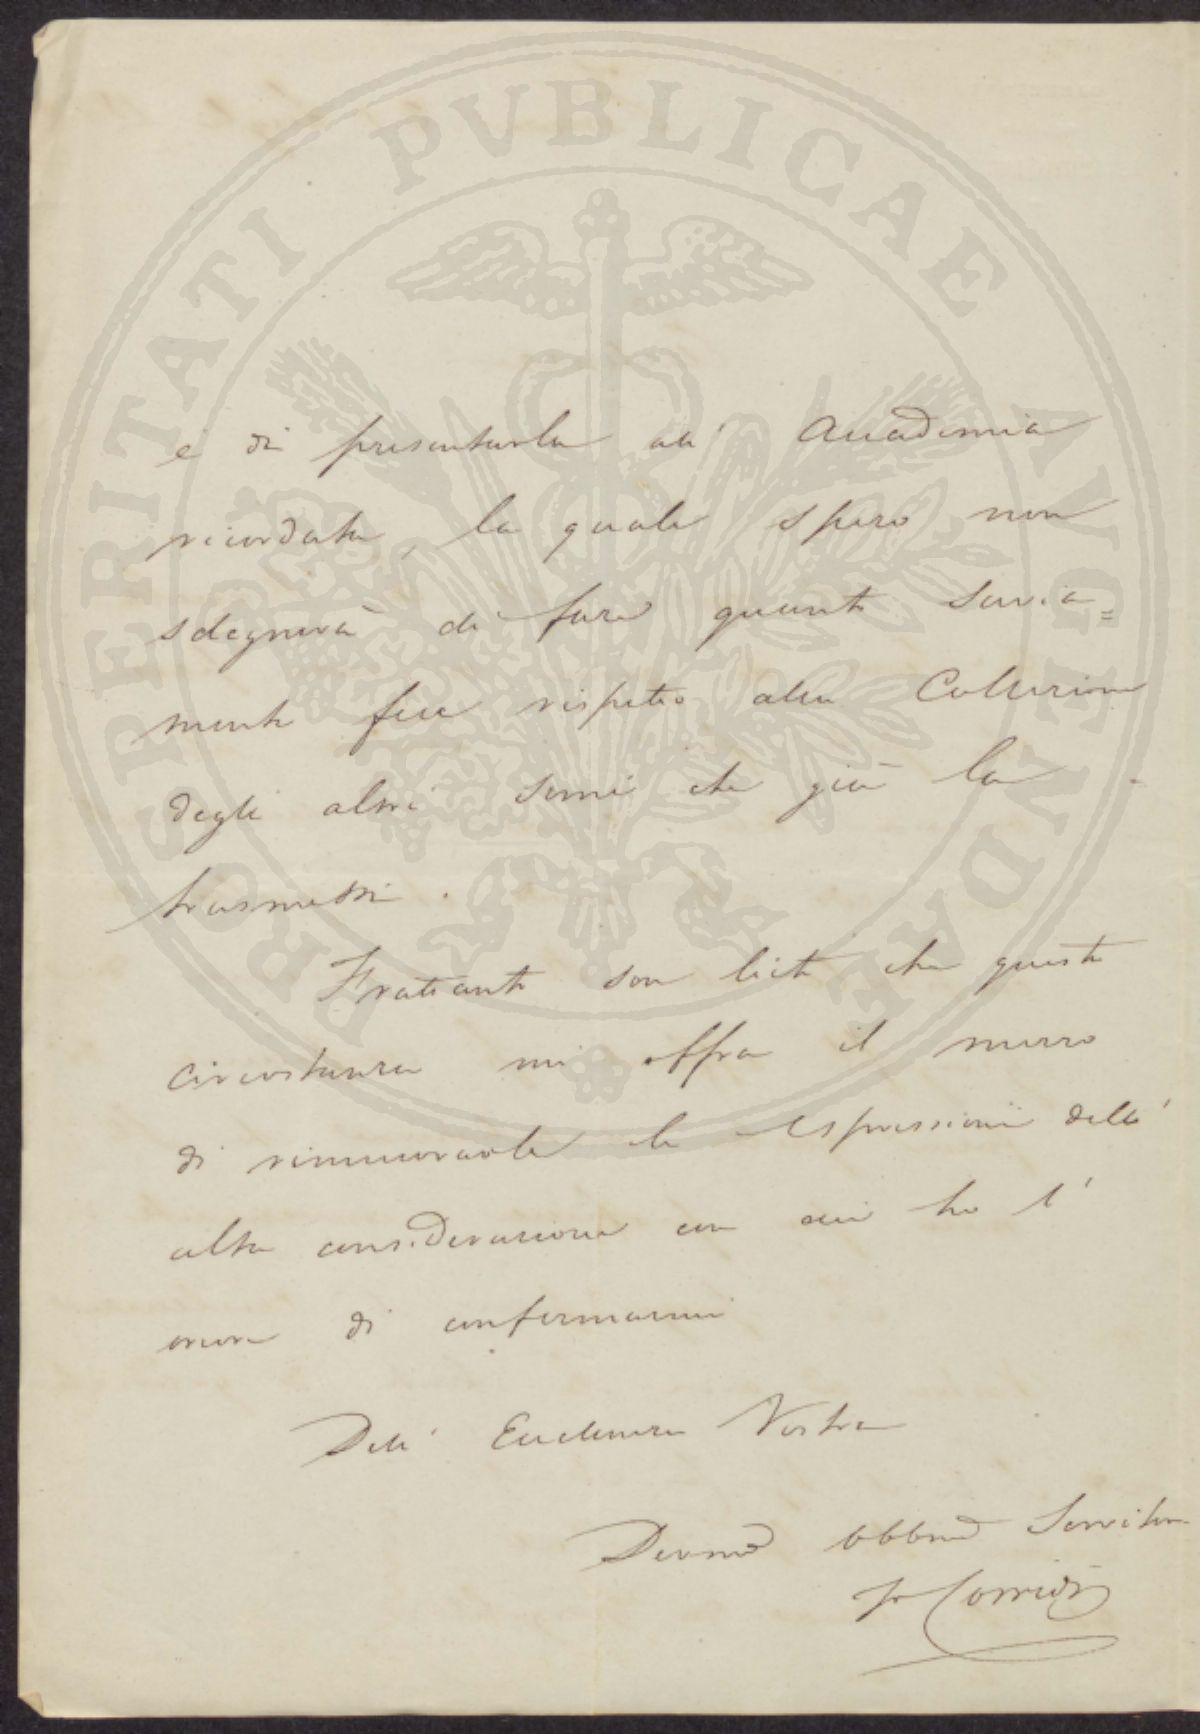 PROSPERITATI PVBLICAE AVGENDAE
e di presentarla all' Accademia
ricordata, la quale spero non
sdegnerà di fare quanto savia=
mente fece rispetto alla Collezione
degli altri semi che già la
trasmessi.
Frattanto son lieto che questa
circostanza mi offra il mezzo
di rinnuovarle le espressioni dell'
alta considerazione con cui ho l'
onore di confermarmi
Dell' Eccellenza Vostra
Devmo Obbmo Servitore
F Corridi